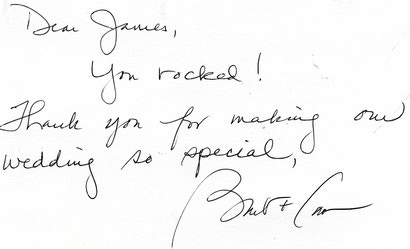 Dear James,
You rocked!
Thank you for making our
wedding so special,